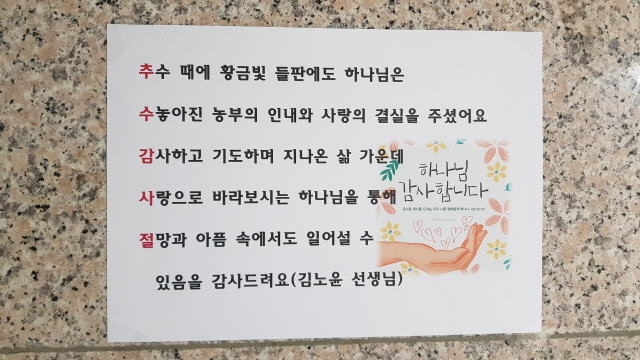 추수 때에 황금빛 들판에도 하나님은
수놓아진 농부의 인내와 사랑의 결실을 주셨어요
감사하고 기도하며 지나온 삶 가운데
사랑으로 바라보시는 하나님을 통해
절망과 아픔 속에서도 일어설 수
있음을 감사드려요(김노윤 선생님)
하나님
감사합니다